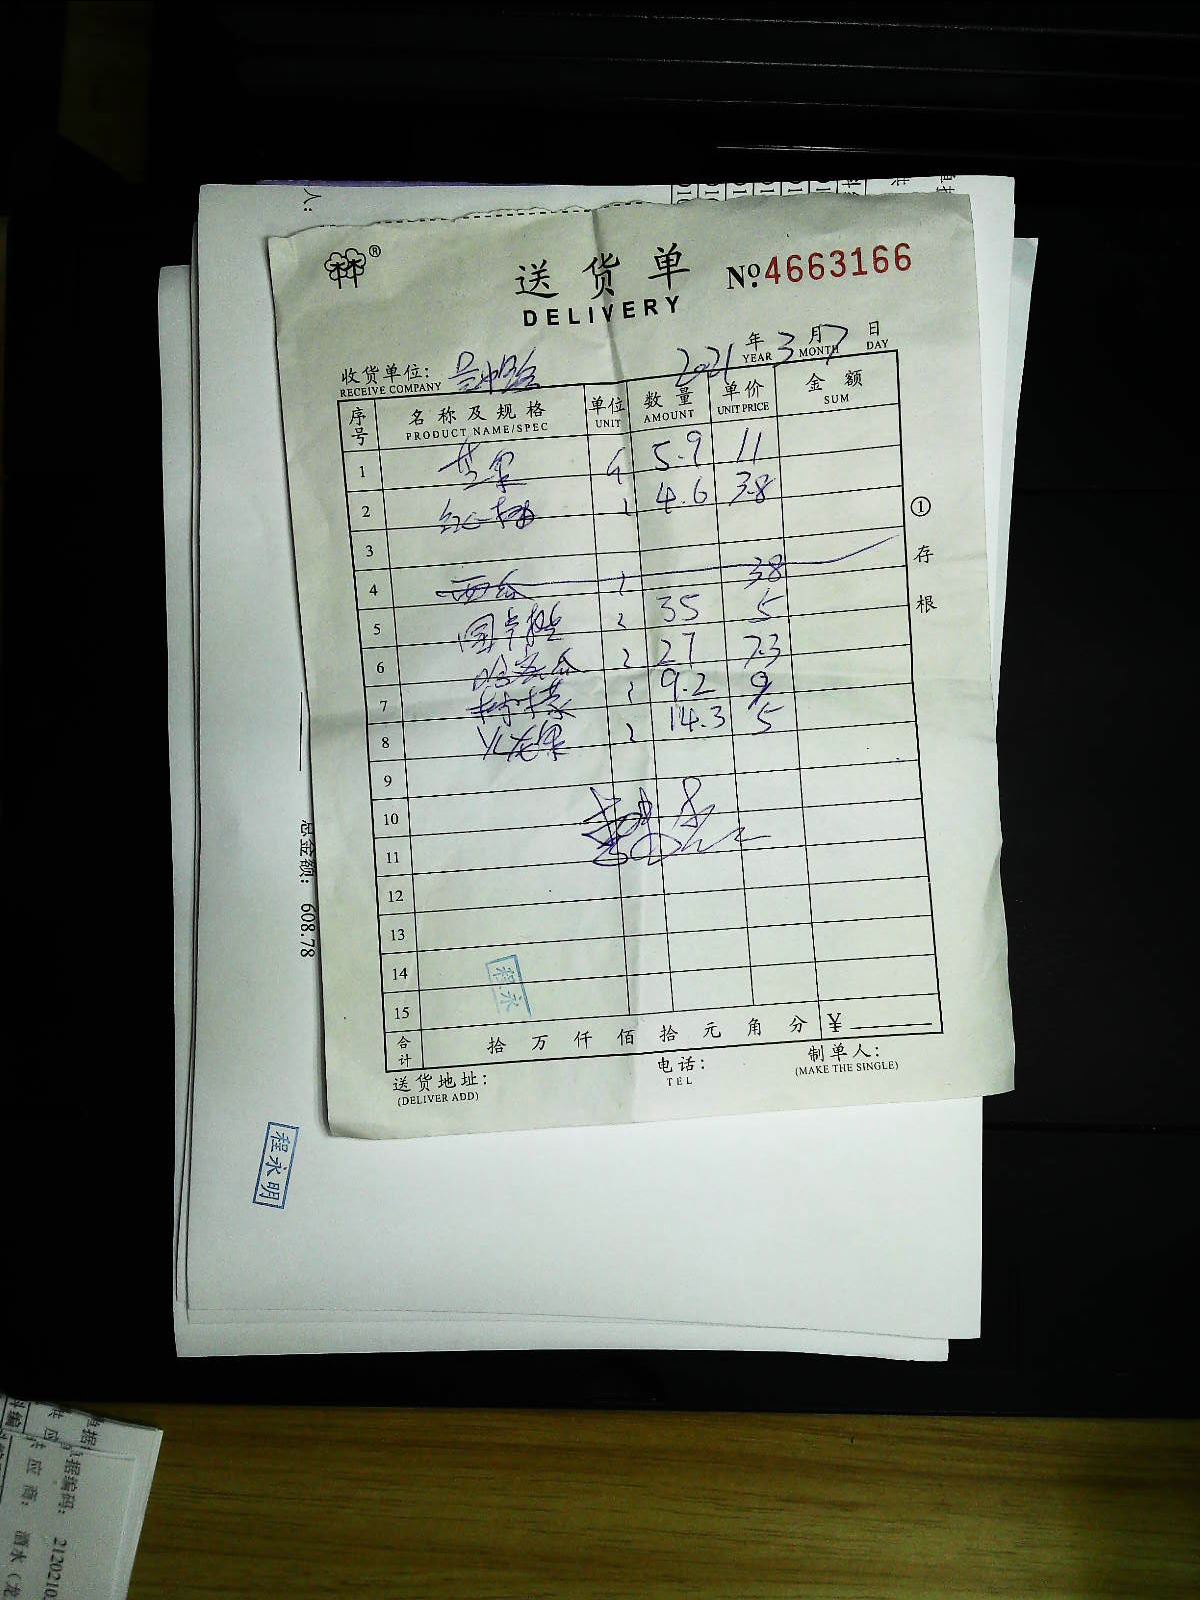 送货单 №4663166
DELIVERY
2021年 3月 7日
YEAR MONTH DAY
收货单位:
RECEIVE COMPANY
序号 名称及规格 单位 数量 单价 金额
PRODUCT NAME/SPEC UNIT AMOUNT UNIT PRICE SUM
1 苹果 5.9 11
2 红心柚 4.6 3.8
3
4 西瓜 38
5 35 5
6 哈密瓜 27 7.3
7 9.2 9
8 火龙果 14.3 5
9
10
11
12
13
14
15
合计 拾 万 仟 佰 拾 元 角 分 ¥
送货地址: 电话: 制单人:
(DELIVER ADD) TEL (MAKE THE SINGLE)
①存根
程永
人:
总金额: 608.78
程永明
据编码: 2120210
应商: